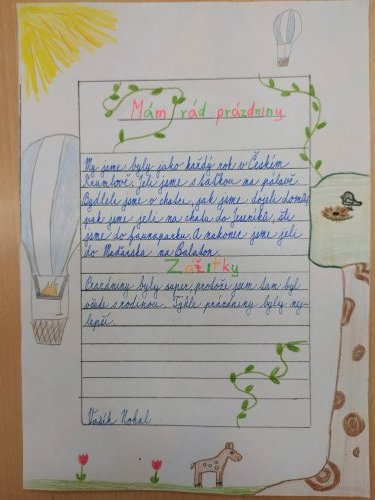 Mám rád prázdniny
My jsme byly jako každý rok v Českém
Krumlově. Jeli jsme s taťkou na pálavě
Bydleli jsme v chatce, jak jsme dojeli domů,
pak jsme jeli na chatu do Jeseníků, šli
jsme do faunaparku. A nakonec jsme jeli
do Maďarska na Balaton.
Zážitky
Prázdniny byly super, protože jsem tam byl
všude s rodinou. Tyhle prázdniny byly nej-
lepší.
Vašík Nohal